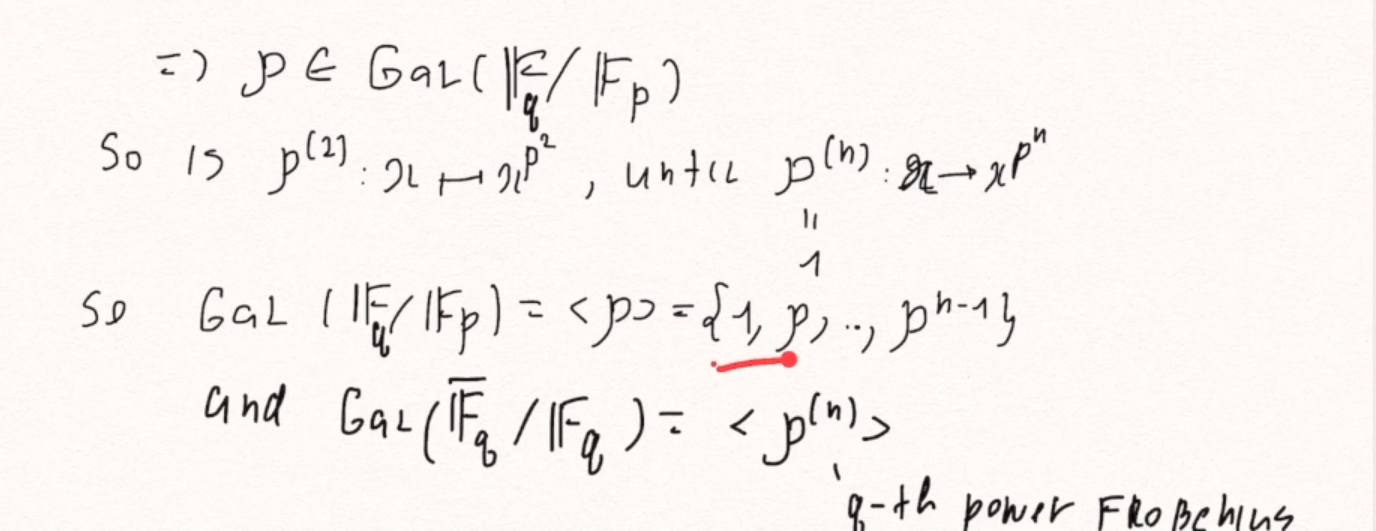 =) p ∈ Gal(𝔽q/𝔽p)
So is p^(2) : x ↦ x^p^2, until p^(n) : x → x^p^n
"
1
So Gal(𝔽q/𝔽p) = <p> = {1, p, .., p^n-1}
and Gal(𝔽̅q/𝔽q) = <p^(n)>
q-th power FROBENIUS